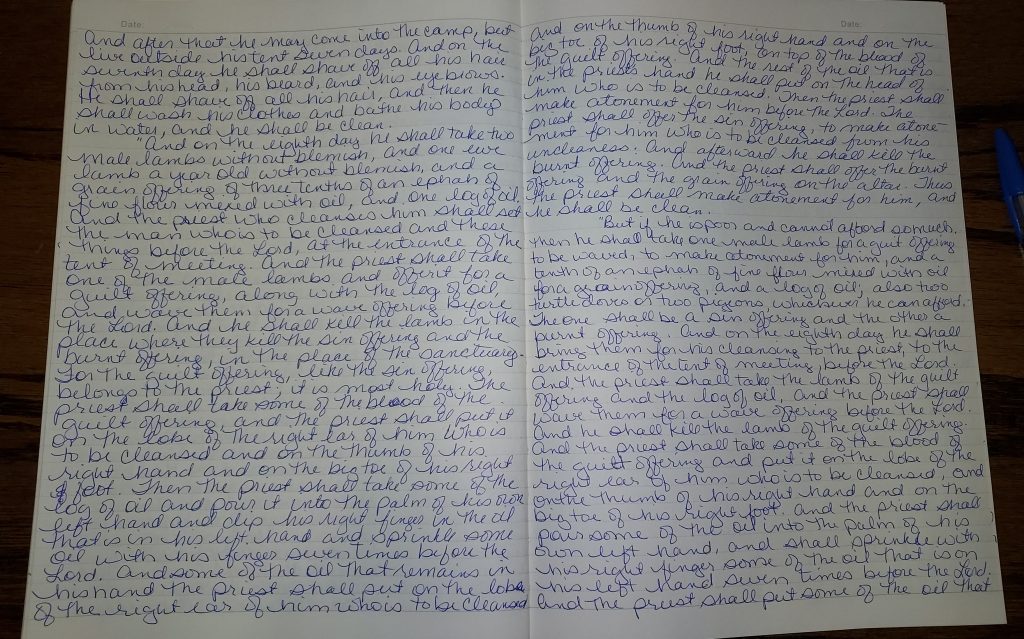 Date:
And after that he may come into the camp, but
live outside his tent seven days. And on the
seventh day he shall shave off all his hair
from his head, his beard, and his eyebrows.
He shall shave off all his hair, and then he
shall wash his clothes and bathe his body
in water, and he shall be clean.
"And on the eighth day he shall take two
male lambs without blemish, and one ewe
lamb a year old without blemish, and a
grain offering of three tenths of an ephah of
fine flour mixed with oil, and one log of oil.
And the priest who cleanses him shall set
the man who is to be cleansed and these
things before the Lord, at the entrance of the
tent of meeting. And the priest shall take
one of the male lambs and offer it for a
guilt offering, along with the log of oil,
and wave them for a wave offering before
the Lord. And he shall kill the lamb in the
place where they kill the sin offering and the
burnt offering, in the place of the sanctuary.
For the guilt offering, like the sin offering,
belongs to the priest; it is most holy. The
priest shall take some of the blood of the
guilt offering, and the priest shall put it
on the lobe of the right ear of him who is
to be cleansed and on the thumb of his
right hand and on the big toe of his right
foot. Then the priest shall take some of the
log of oil and pour it into the palm of his own
left hand and dip his right finger in the oil
that is in his left hand and sprinkle some
oil with his finger seven times before the
Lord. And some of the oil that remains in
his hand the priest shall put on the lobe
of the right ear of him who is to be cleansed
Date:
And on the thumb of his right hand and on the
big toe of his right foot, on top of the blood of
the guilt offering. And the rest of the oil that is
in the priest's hand he shall put on the head of
him who is to be cleansed. Then the priest shall
make atonement for him before the Lord. The
priest shall offer the sin offering, to make atone-
ment for him who is to be cleansed from his
uncleanness. And afterward he shall kill the
burnt offering. And the priest shall offer the burnt
offering and the grain offering on the altar. Thus
the priest shall make atonement for him, and
he shall be clean.
"But if he is poor and cannot afford so much,
then he shall take one male lamb for a guilt offering
to be waved, to make atonement for him, and a
tenth of an ephah of fine flour mixed with oil
for a grain offering, and a log of oil; also two
turtledoves or two pigeons, whichever he can afford.
The one shall be a sin offering and the other a
burnt offering. And on the eighth day he shall
bring them for his cleansing to the priest, to the
entrance of the tent of meeting, before the Lord.
And the priest shall take the lamb of the guilt
offering and the log of oil, and the priest shall
wave them for a wave offering before the Lord.
And he shall kill the lamb of the guilt offering.
And the priest shall take some of the blood of
the guilt offering and put it on the lobe of the
right ear of him who is to be cleansed, and
on the thumb of his right hand and on the
big toe of his right foot. And the priest shall
pour some of the oil into the palm of his
own left hand, and shall sprinkle with
his right finger some of the oil that is on
his left hand seven times before the Lord.
And the priest shall put some of the oil that